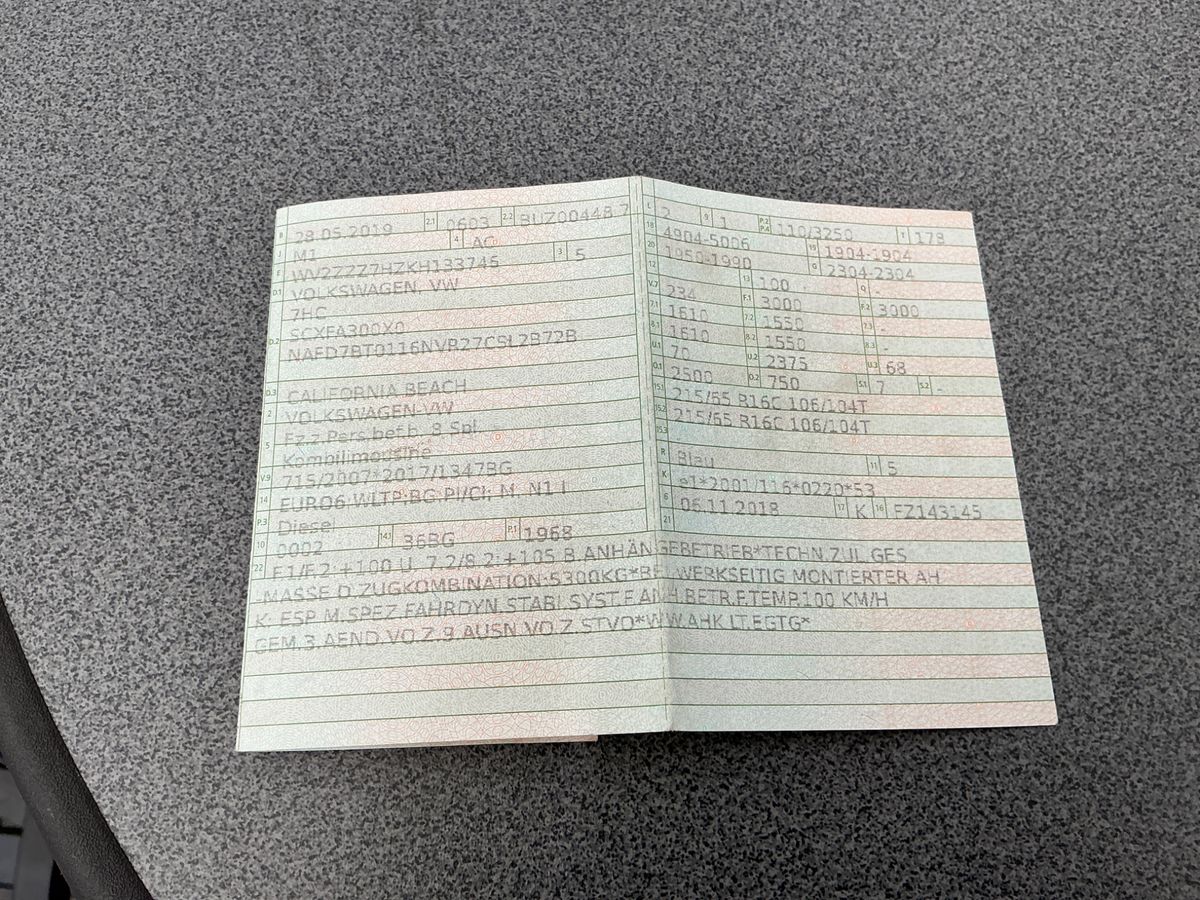 B 28.05.2019 2.1 0603 2.2 BUZ00448 7
J M1 4 AC
E WV2ZZZ7HZKH133745 3 5
D.1 VOLKSWAGEN, VW
7HC
D.2 SCXFA300X0
NAFD7BT0116NVR27CSL2B72B
D.3 CALIFORNIA BEACH
2 VOLKSWAGEN-VW
5 Fz.z.Pers.bef.b. 8 Spl.
Kombilimousine
V.9 715/2007*2017/1347BG
14 EURO6;WLTP;BG;PI/CI; M, N1 I
P.3 Diesel
10 0002 14.1 36BG P.1 1968
L 2 9 1 P.2 P.4 110/3250 T 178
18 4904-5006 19 1904-1904
20 1950-1990 G 2304-2304
12 - 13 100 Q -
V.7 234 F.1 3000 F.2 3000
7.1 1610 7.2 1550 7.3 -
8.1 1610 8.2 1550 8.3 -
U.1 70 U.2 2375 U.3 68
O.1 2500 O.2 750 S.1 7 S.2 -
15.1 215/65 R16C 106/104T
15.2 215/65 R16C 106/104T
15.3
R Blau 11 5
K e1*2001/116*0220*53
6 06.11.2018 17 K 16 FZ143145
21
22 F.1/F.2:+100 U. 7.2/8.2:+105 B.ANHÄNGEBETRIEB*TECHN.ZUL.GES.
MASSE D.ZUGKOMBINATION:5300KG* WERKSEITIG MONTIERTER AH
K: ESP M.SPEZ.FAHRDYN.STABI.SYST.F.ANH.BETR.F.TEMP.100 KM/H
GEM.3.AEND.VO.Z.9.AUSN.VO.Z.STVO*WW.AHK LT.EGTG*